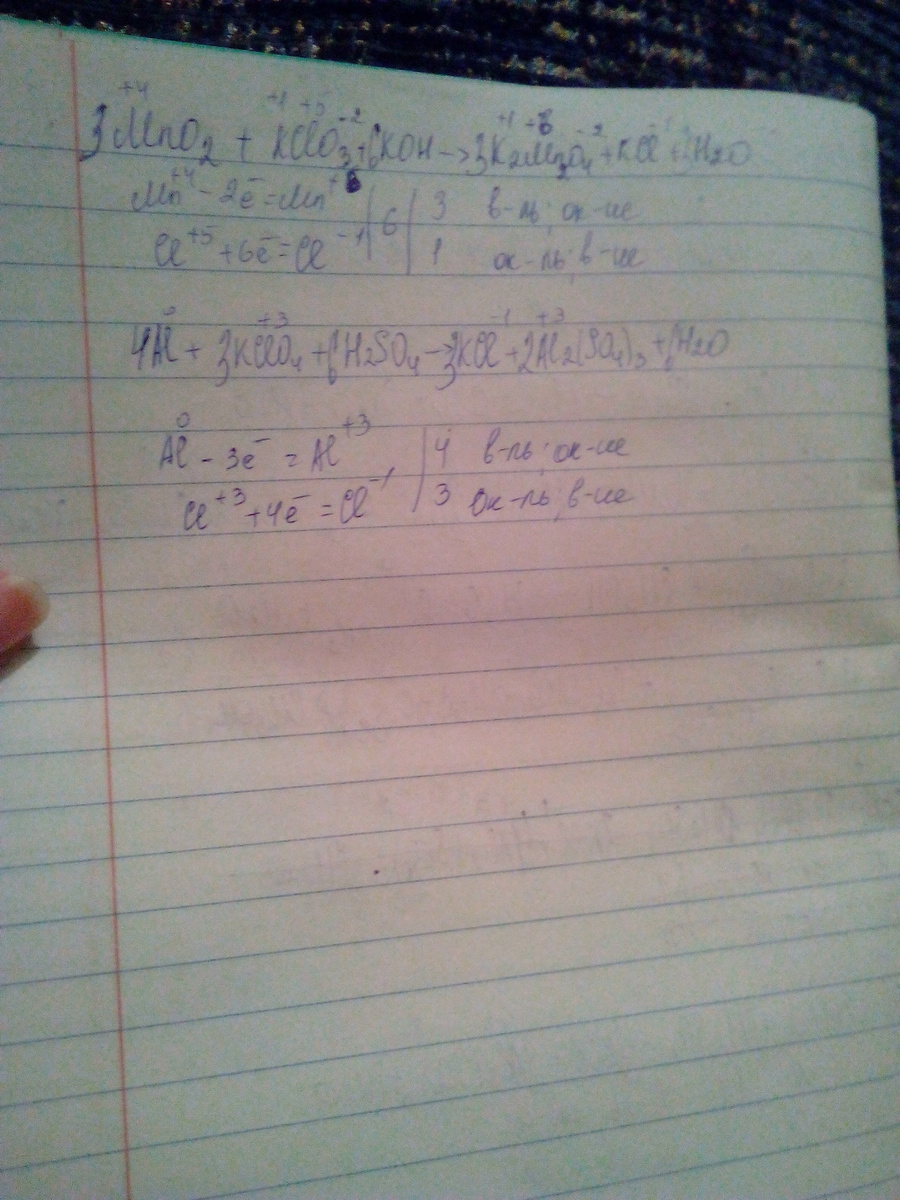 +4 +1 +5 -2 +1 +6 -2 -1
3MnO2 + KClO3 + 6KOH -> 3K2MnO4 + KCl + 3H2O
Mn+4 - 2e̅ = Mn+6 | 6 | 3 в-ль; ок-ие
Cl+5 + 6e̅ = Cl-1 | | 1 ок-ль; в-ие
0 +3 -1 +3
4Al + 3KClO4 + 6H2SO4 -> 3KCl + 2Al2(SO4)3 + 6H2O
0
Al - 3e̅ = Al+3 | 4 в-ль; ок-ие
Cl+3 + 4e̅ = Cl-1 | 3 ок-ль; в-ие